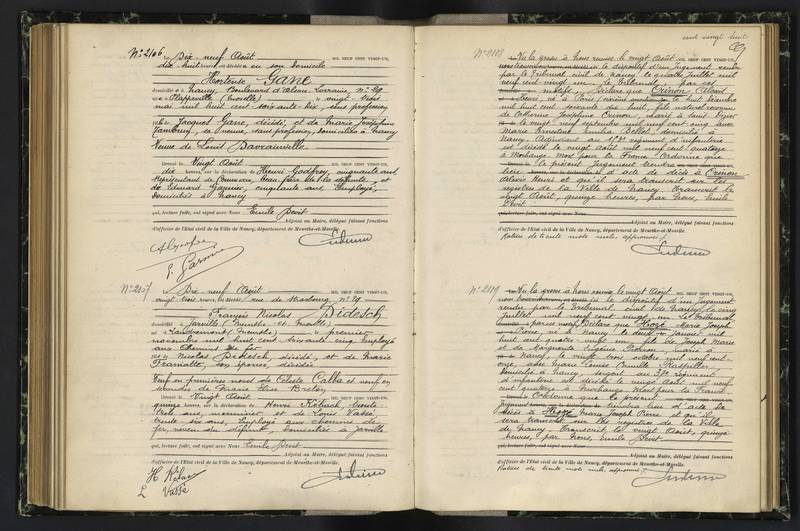 N° 2106
Le Dix-neuf Août MIL NEUF CENT VINGT-UN,
dix huit heures, est décédée en son domicile
Hortense GANE
domiciliée à Nancy, Boulevard d'Alsace-Lorraine, N° 29
née à (Moselle) le vingt
mai mil huit cent soixante-dix, sans profession
fille de Jacques Gane, décédé, et de Marie Joséphine
sa veuve, sans profession, domiciliée à Nancy
Veuve de Louis
Dressé le Vingt Août MIL NEUF CENT VINGT-UN,
dix heures, sur la déclaration de Henri Godfroy, cinquante ans
Représentant de Commerce, beau frère de la défunte, et
de Edouard Garnier, cinquante ans, Employé,
domiciliés à Nancy
qui, lecture faite, ont signé avec Nous Emile
Adjoint au Maire, délégué faisant fonctions
d'officier de l'État civil de la Ville de Nancy, département de Meurthe-et-Moselle.
N° 2107
Le Dix-neuf Août MIL NEUF CENT VINGT-UN,
vingt trois heures, est décédé rue de Strasbourg N° 29
François Nicolas DIDESCH
domicilié à Jarville (Meurthe et Moselle)
né à (Moselle) le premier
novembre mil huit cent soixante cinq, Employé
aux Chemins de fer
fils de Nicolas Didesch, décédé, et de Marie
son épouse, décédée
Veuf en premières noces de Céleste Calba et veuf en
secondes de Marie Elise Breton
Dressé le Vingt Août MIL NEUF CENT VINGT-UN,
quinze heures, sur la déclaration de Henri trente
trois ans, et de Louis Vassé
trente six ans, Employé aux chemins de
fer, du défunt, domiciliés à Jarville
qui, lecture faite, ont signé avec Nous Emile
Adjoint au Maire, délégué faisant fonctions
d'officier de l'État civil de la Ville de Nancy, département de Meurthe-et-Moselle.
L Vassé
cent vingt huit
N° 2108
Vu la grosse à nous remise le vingt Août MIL NEUF CENT VINGT-UN,
le dispositif d'un Jugement rendu
par le Tribunal civil de Nancy le quatre Juillet mil
neuf cent vingt un. Le Tribunal
motifs Déclare que Crinon Alcide
né à Paris le huit Décembre
mil huit cent soixante dix huit, fils naturel reconnu
de Catherine Joséphine Crinon, marié à
le vingt neuf septembre mil neuf cent cinq avec
Marie Ernestine Emilia Bellot domicilié à
Nancy, Adjudant au régiment d'infanterie
est décédé le vingt août mil neuf cent quatorze
à Morhange Mort pour la France. Ordonne que
le présent Jugement tiendra
lieu d'acte de décès à Crinon
et qu'il sera transcrit sur les
registres de la Ville de Nancy. Transcrit le
vingt Août, quinze heures, par Nous, Emile
qui, lecture faite, ont signé avec Nous
Adjoint au Maire, délégué faisant fonctions
d'officier de l'État civil de la Ville de Nancy, département de Meurthe-et-Moselle.
Rature de trente mots nuls, approuvée
N° 2109
Vu la grosse à nous remise le vingt Août MIL NEUF CENT VINGT-UN,
le dispositif d'un Jugement
rendu par le Tribunal civil de Nancy le cinq
Juillet mil neuf cent vingt un. Le Tribunal
par ces motifs, Déclare que Marie Joseph
Pierre, né à Nancy, le Janvier mil
huit cent quatre vingt un, fils de Joseph Marie
et de Marguerite Eugénie marié à
Nancy, le vingt trois octobre mil neuf cent
onze, avec Marie Louise Camille
domicilié à Nancy, sergent au 37e régiment
d'infanterie est décédé le vingt Août mil neuf
cent quatorze à Morhange Mort pour la France.
Ordonne que le présent
jugement tiendra lieu d'acte de
décès à Marie Joseph Pierre et qu'il
sera transcrit sur les registres de la Ville
de Nancy. Transcrit le vingt Août, quinze
heures, par Nous, Emile
qui, lecture faite, ont signé avec Nous
Adjoint au Maire, délégué faisant fonctions
d'officier de l'État civil de la Ville de Nancy, département de Meurthe-et-Moselle.
Rature de trente mots nuls, approuvée